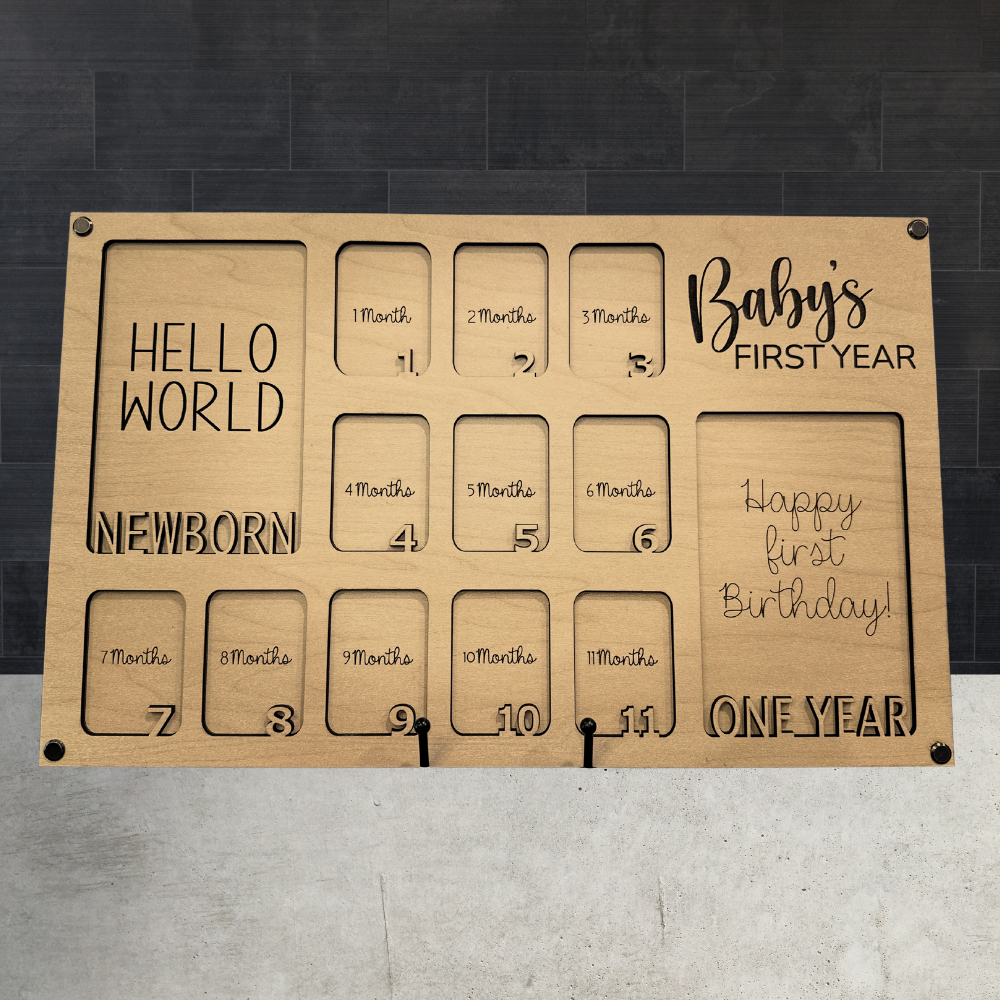 HELLO
WORLD
NEWBORN
1 Month
1
2 Months
2
3 Months
3
Baby's
FIRST YEAR
4 Months
4
5 Months
5
6 Months
6
Happy
first
Birthday!
ONE YEAR
7 Months
7
8 Months
8
9 Months
9
10 Months
10
11 Months
11